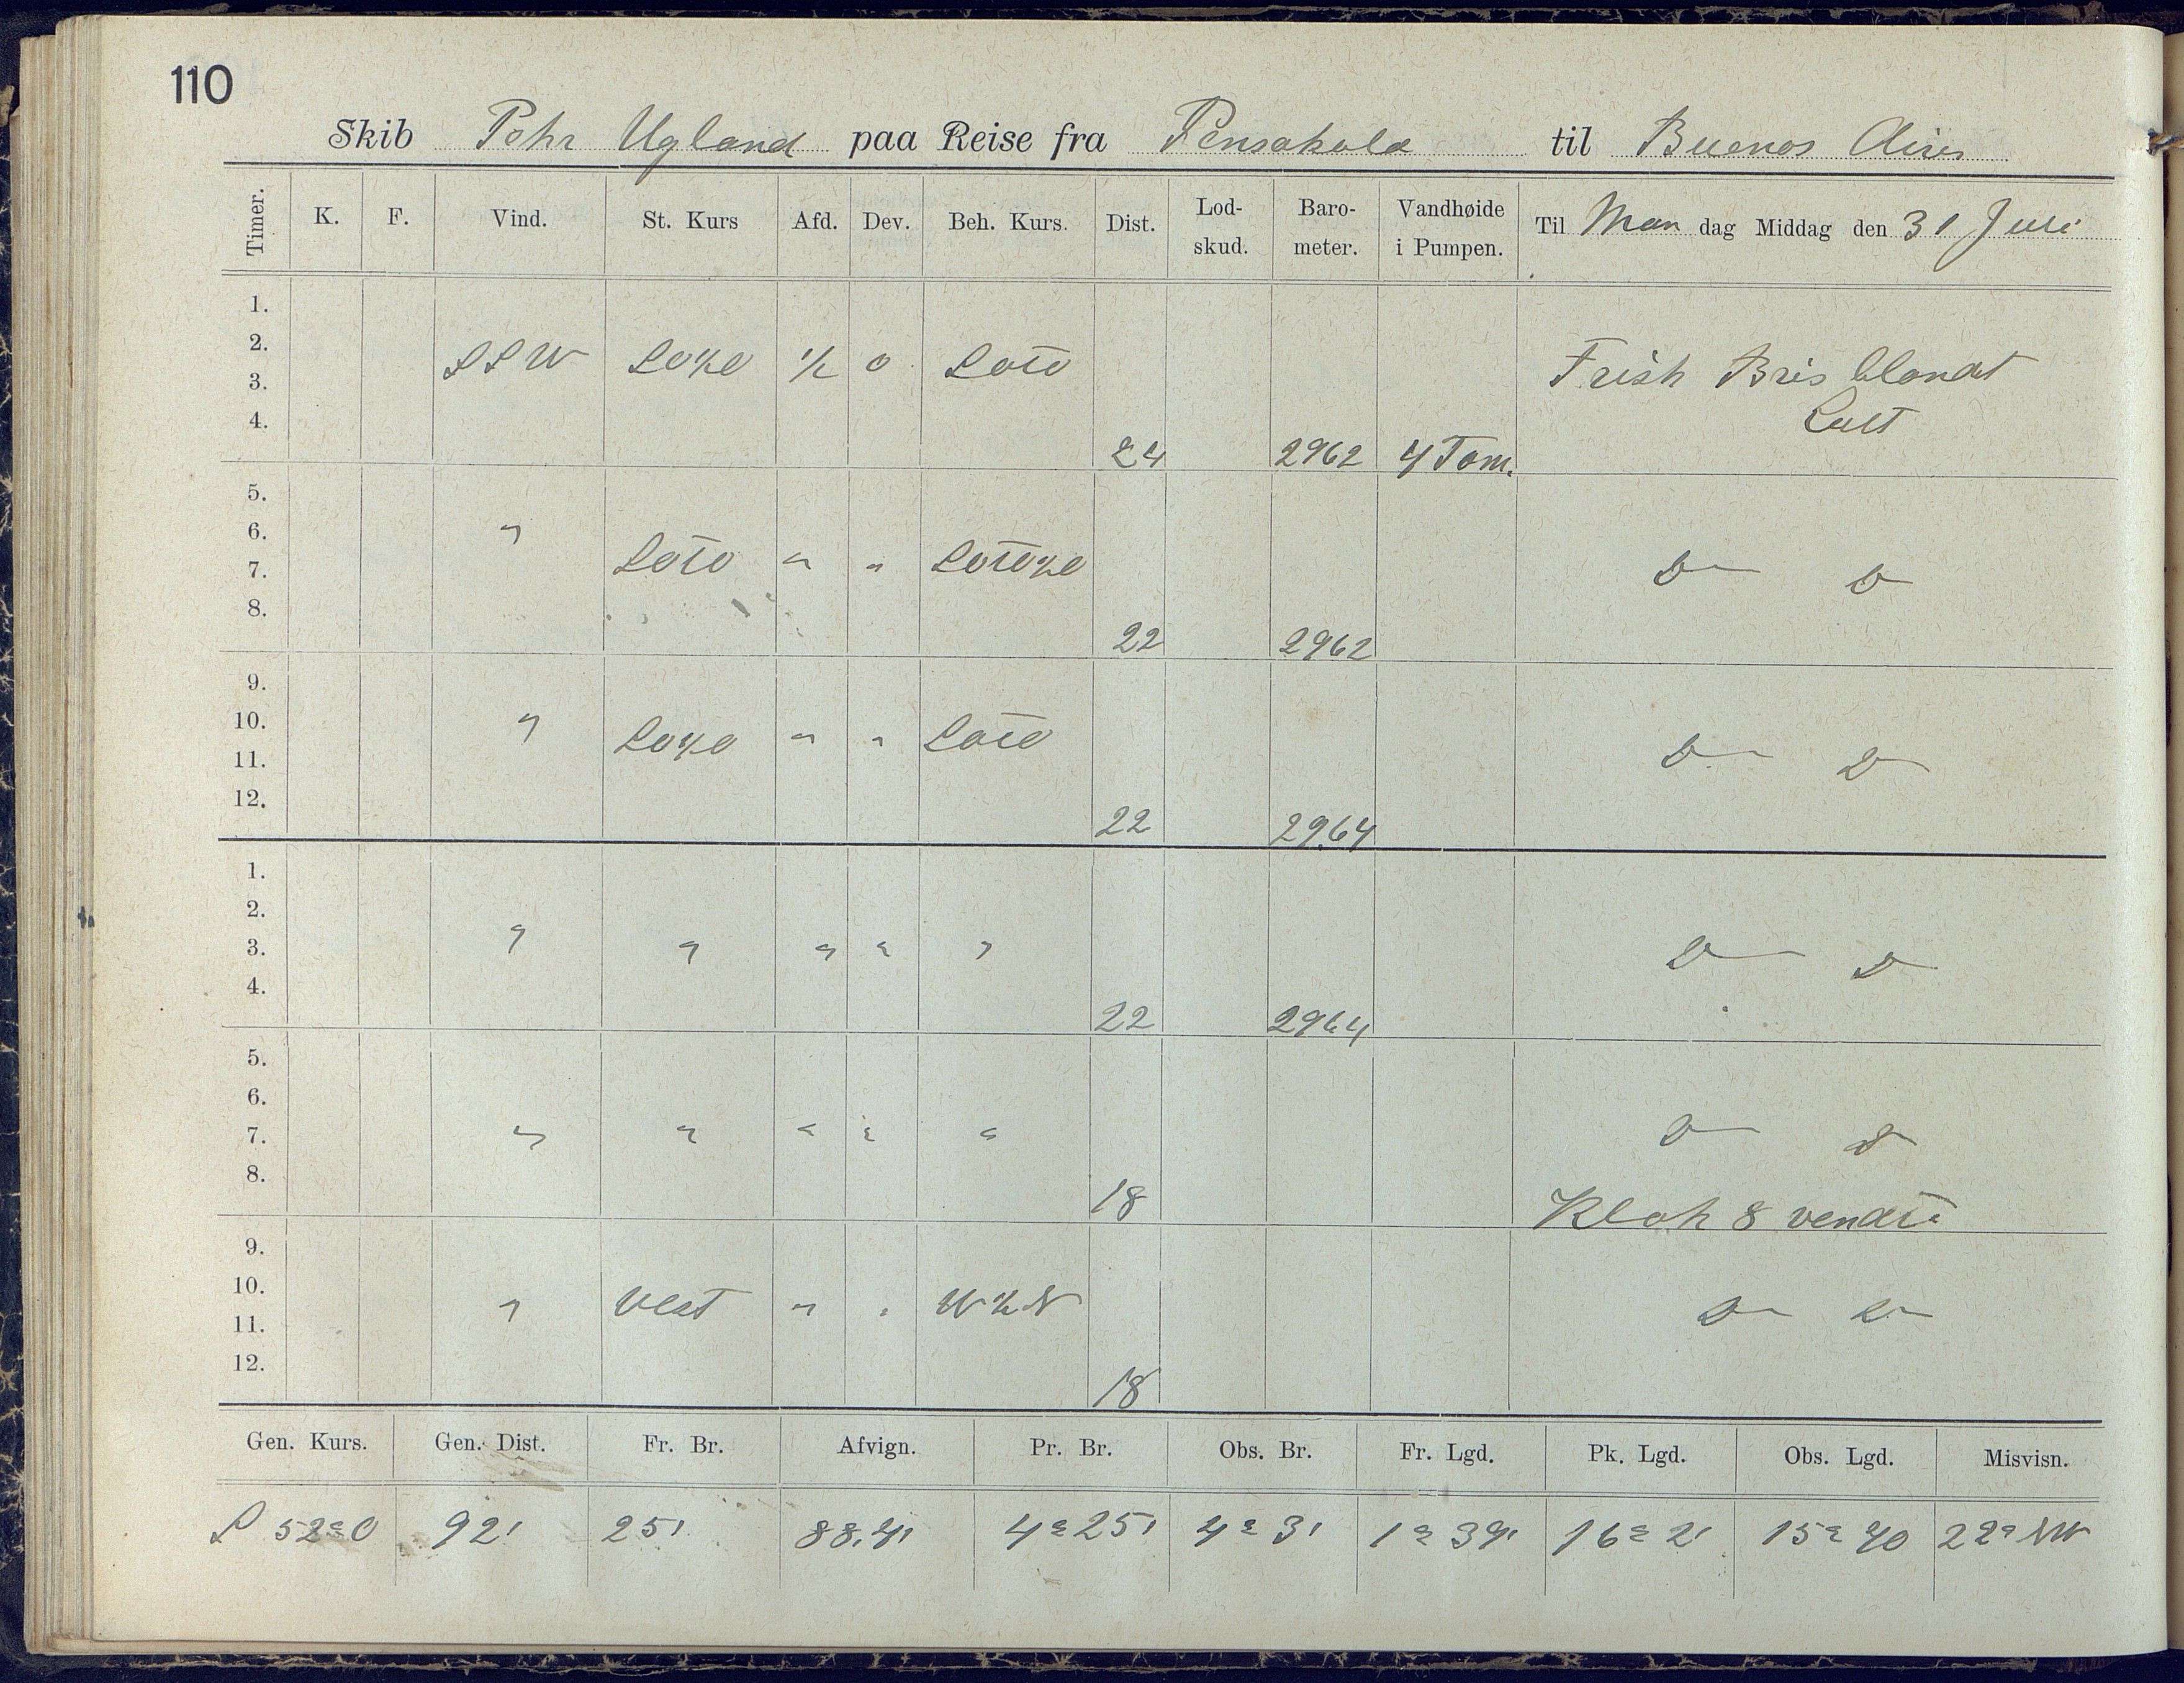 110
Skib Pehr Ugland paa Reise fra Pensakola til Buenos Aires
Timer. K. F. Vind. St. Kurs Afd. Dev. Beh. Kurs. Dist. Lod-skud. Baro-meter. Vandhøide i Pumpen. Til Man dag Middag den 31 Juli
1.
2. SSW SO½O ½ 0 SOtO Frisk Bris blandt
3.
4. Luft
24 2962 4 Tom.
5.
6. "
7. SOtO " " SOtO½O D— D—
8.
22 2962
9.
10. "
11. SO½O " " SOtO D— D—
12.
22 2964
1.
2.
3. " " " " " D— D—
4.
22 2964
5.
6.
7. " " " " " D— D—
8.
18 Klok 8 vendte
9.
10. " Vest " " W½N D— D—
11.
12.
18
Gen. Kurs. Gen. Dist. Fr. Br. Afvign. Pr. Br. Obs. Br. Fr. Lgd. Pk. Lgd. Obs. Lgd. Misvisn.
S 52° O 92' 25' 88.4' 4° 25' 4° 3' 1° 39' 16° 2' 15° 40 22° NW